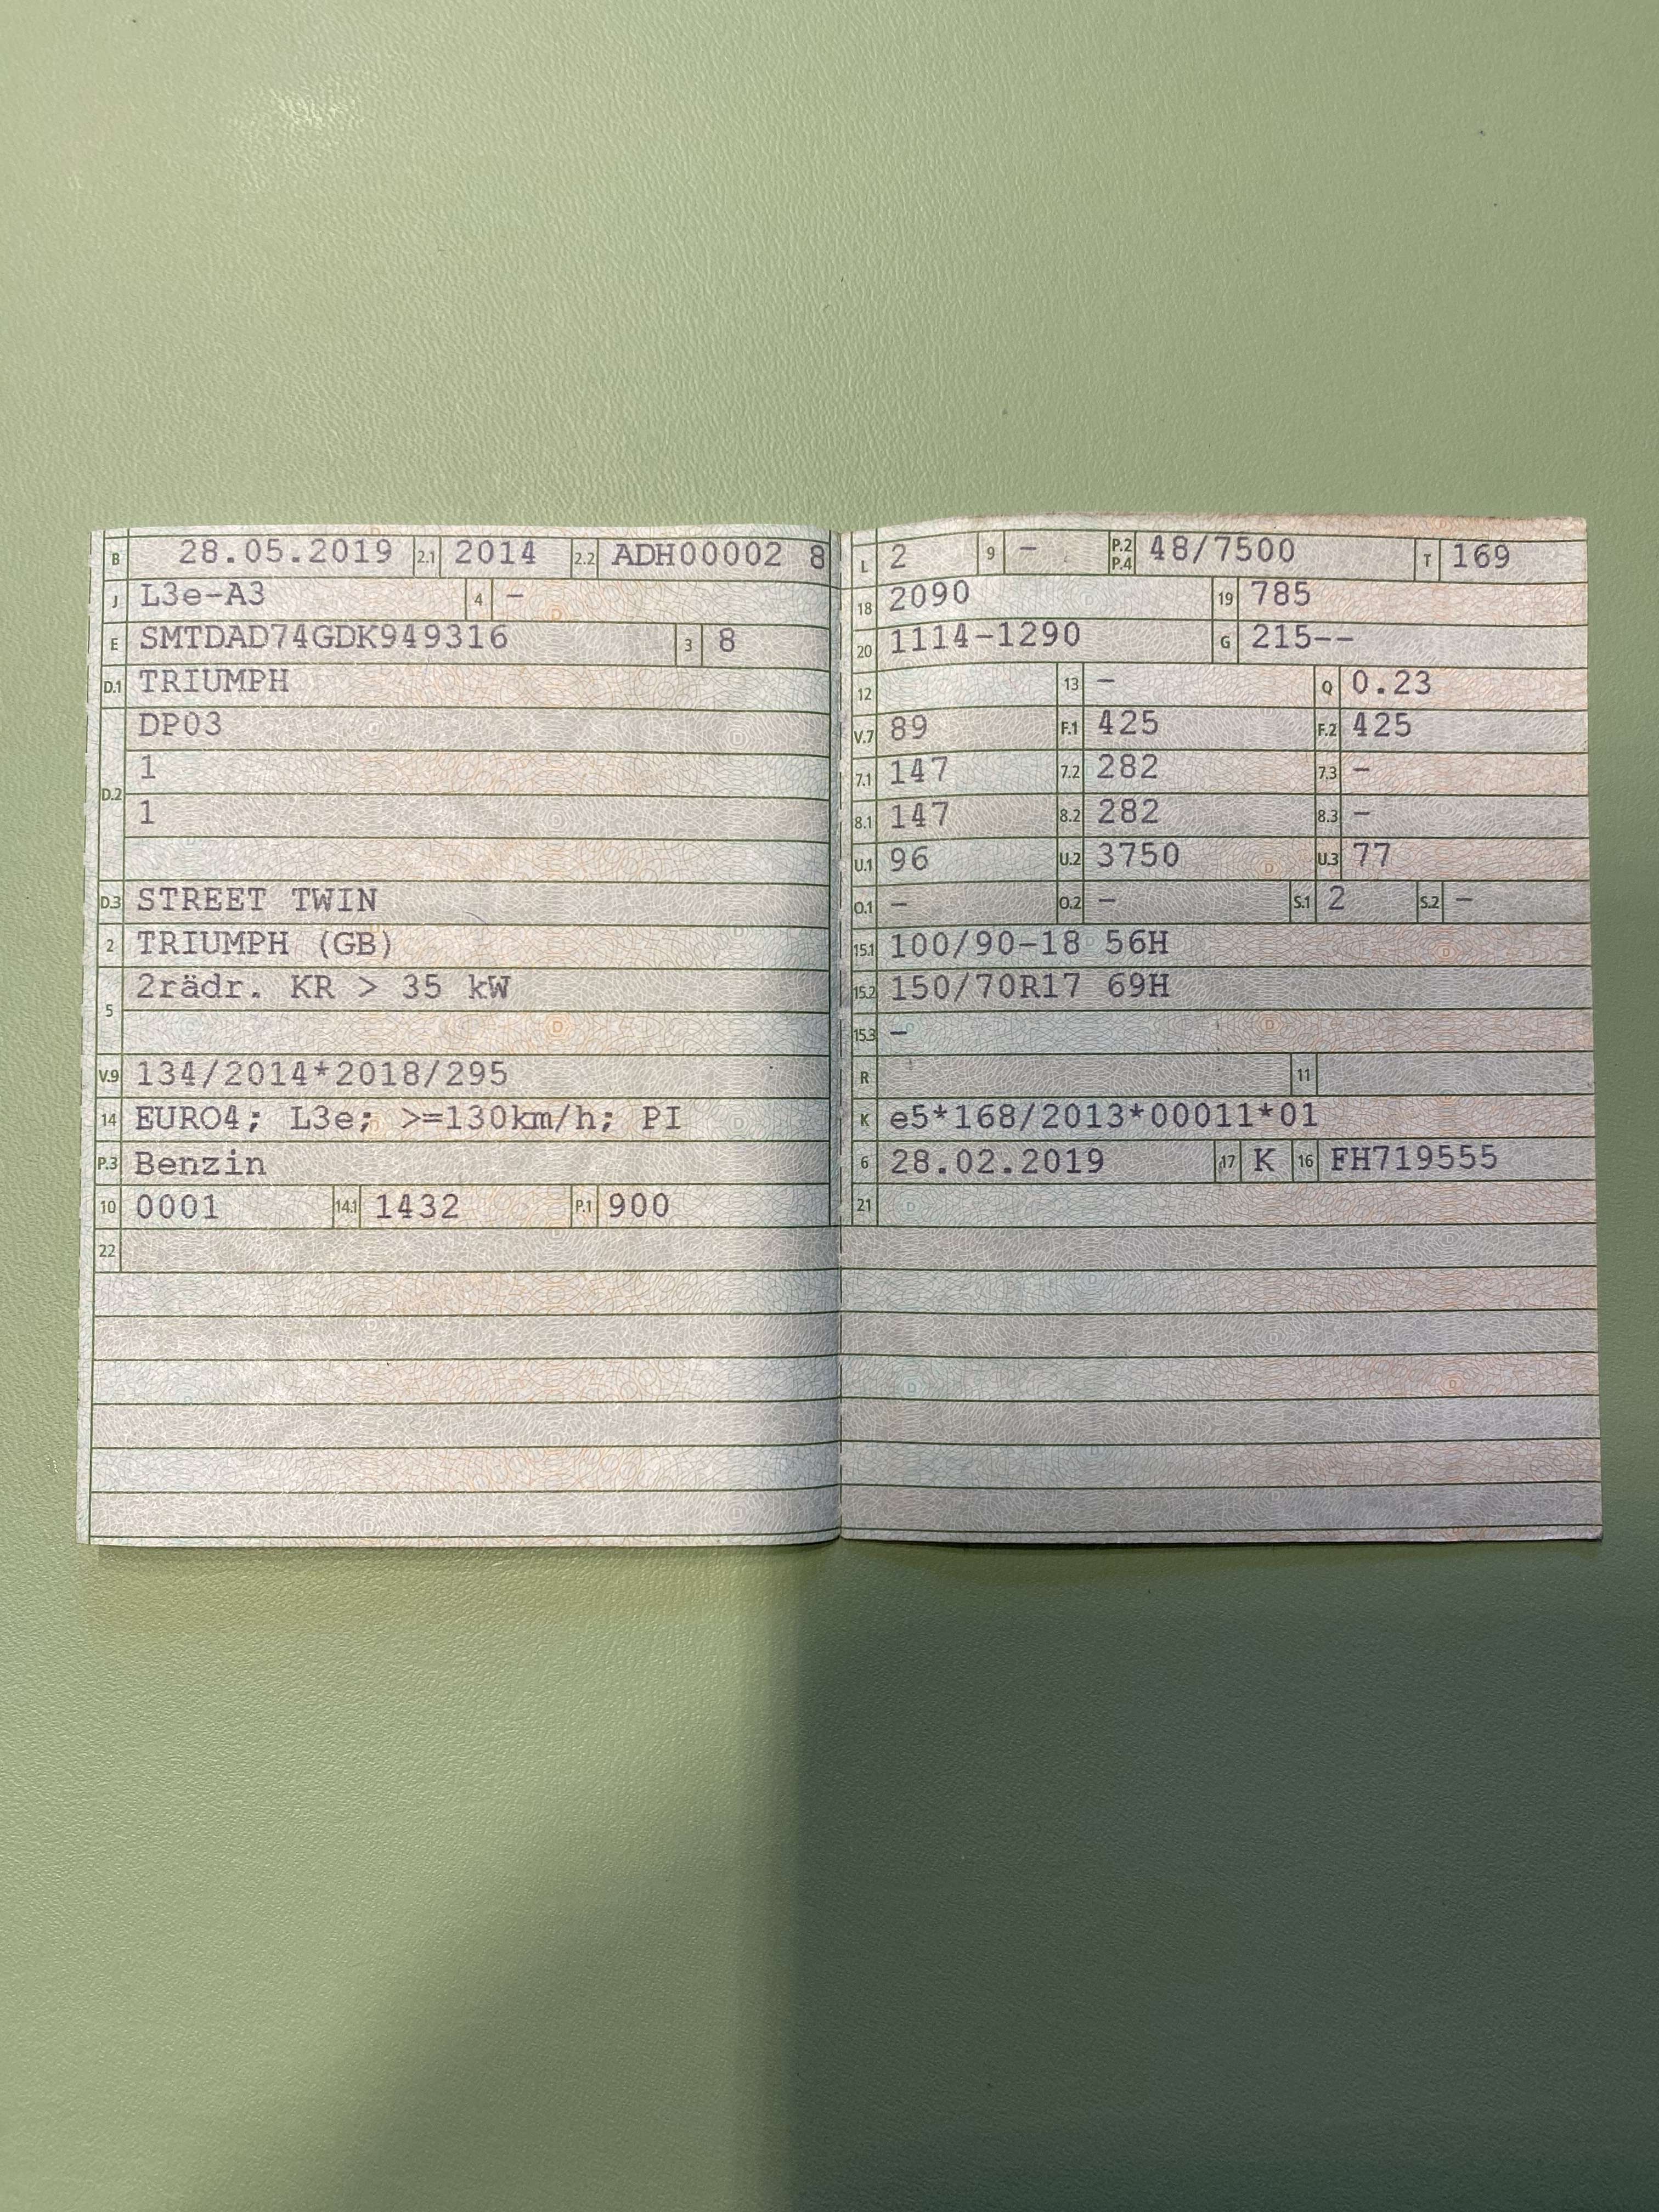 B 28.05.2019 2.1 2014 2.2 ADH00002 8
J L3e-A3 4 –
E SMTDAD74GDK949316 3 8
D.1 TRIUMPH
D.2 DP03
1
1
D.3 STREET TWIN
2 TRIUMPH (GB)
5 2rädr. KR > 35 kW
V.9 134/2014*2018/295
14 EURO4; L3e; >=130km/h; PI
P.3 Benzin
10 0001 14.1 1432 P.1 900
22
L 2 9 – P.2 P.4 48/7500 T 169
18 2090 19 785
20 1114-1290 G 215--
12 13 – Q 0.23
V.7 89 F.1 425 F.2 425
7.1 147 7.2 282 7.3 –
8.1 147 8.2 282 8.3 –
U.1 96 U.2 3750 U.3 77
O.1 – O.2 – S.1 2 S.2 –
15.1 100/90-18 56H
15.2 150/70R17 69H
15.3 –
R 11
K e5*168/2013*00011*01
6 28.02.2019 17 K 16 FH719555
21